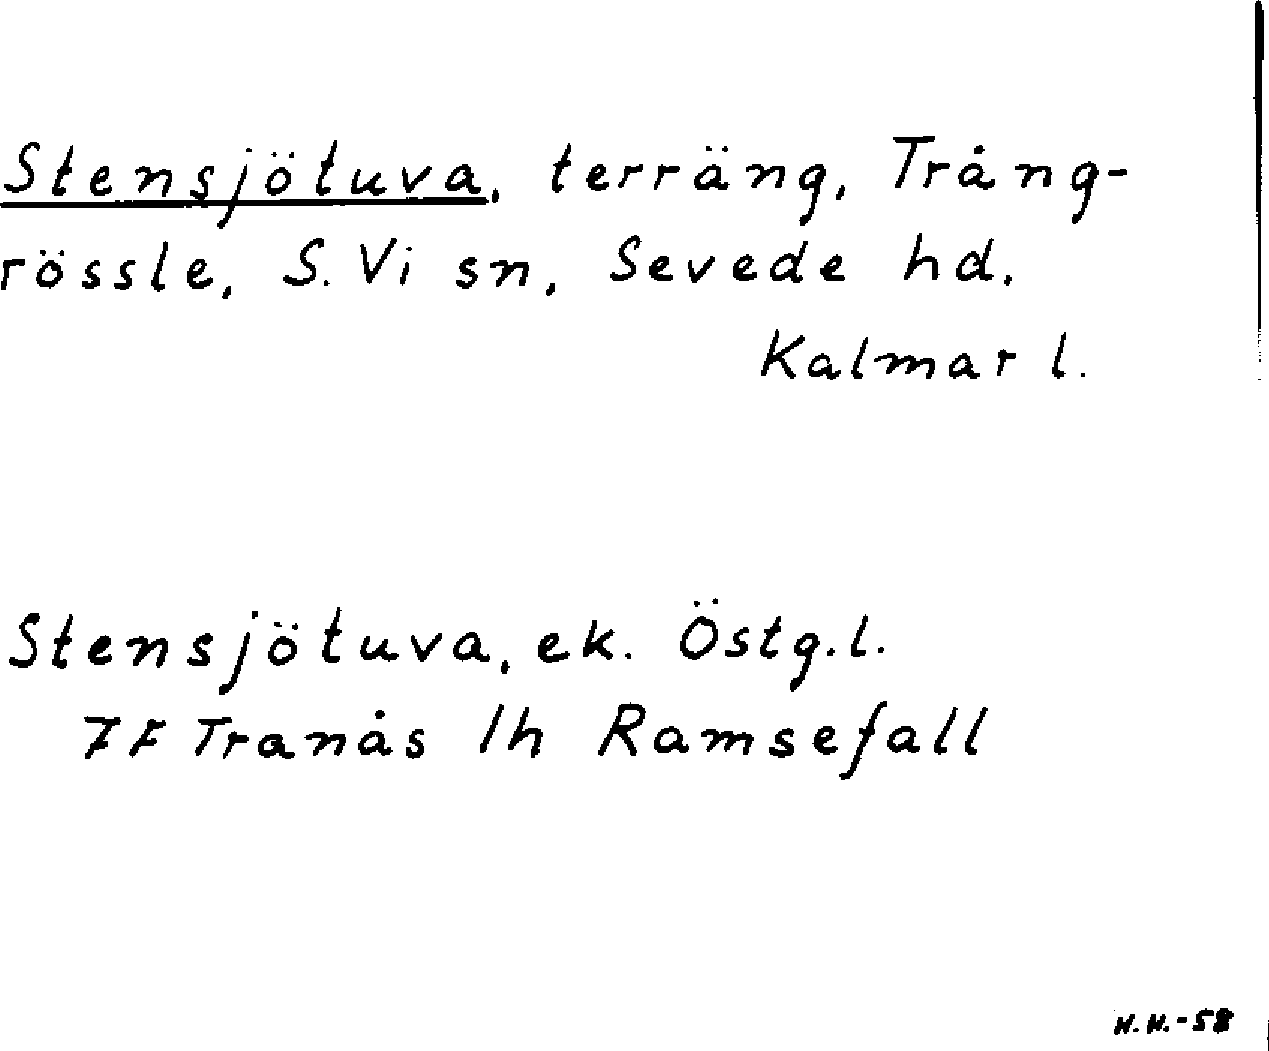 Stensjötuva, terräng, Trång-
rössle, S. Vi sn, Sevede hd.
Kalmar l.
Stensjötuva, ek. Östg.l.
7F Tranås 1h Ramsefall
H.H.-58